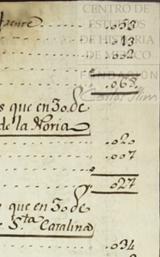 CENTRO DE
ESTUDIOS
DE HISTORIA
DE MEXICO
frente . . . . 053
. . . . 013
. . . . 002
068.
s que en 30. de
de la Noria
. . . . 020
. . . . 007
027
que en 30. de
Sta Catalina
. . . . 034